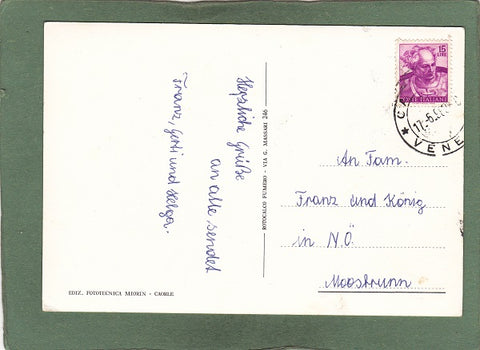 Herzliche Grüße
an alle sendet
Franz, Gerti und Helga.
EDIZ. FOTOTECNICA MIORIN - CAORLE
ROTOCALCO FUMERO - VIA G. MASSARI 246
15
LIRE
POSTE ITALIANE
17.-6.
VENE
An Fam.
Franz und König
in N.Ö.
Moosbrunn